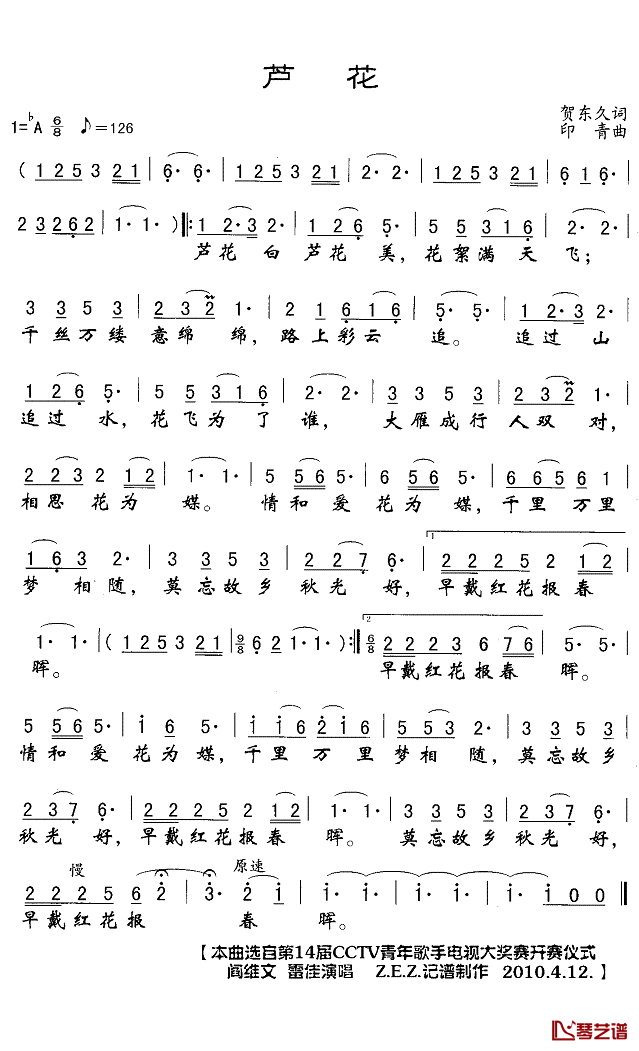 芦 花
1=♭A 6/8 ♪=126
贺东久词
印 青曲
( 1 2 5 3 2 1 | 6· 6· | 1 2 5 3 2 1 | 2· 2· | 1 2 5 3 2 1 | 6 1 6 |
2 3 2 6 2 | 1· 1· ) ‖: 1 2· 3 2 | 1 2 6 5· | 5 5 3 1 6 | 2· 2· |
芦花 白 芦花 美，花絮满 天 飞；
3 3 5 3 | 2 3 2 1· | 2 1 6 1 6 | 5· 5· | 1 2· 3 2· |
千丝万缕 意绵 绵，路上彩云 追。 追过 山
1 2 6 5· | 5 5 3 1 6 | 2· 2· | 3 3 5 3 | 2 3 2 1· |
追过 水，花飞为 了 谁， 大雁成行 人双 对，
2 2 3 2 1 2 | 1· 1· | 5 5 6 5 5· | 6 5 6 5 5· | 6 6 5 6 1 |
相思 花为 媒。 情和 爱 花为 媒，千里 万里
1 6 3 2· | 3 3 5 3 | 2 2 7 6· | 1. 2 2 2 5 2 1 2 |
梦 相 随，莫忘故乡 秋光 好，早戴红花报春
1· 1· ( 1 2 5 3 2 1 | 9/8 6 6 2 1· 1· ) :‖ 6/8 2. 2 2 2 3 6 7 6 | 5· 5· |
晖。 早戴红花报春 晖。
5 5 6 5 5· | 1 6 5· | 1 1 6 2 1 6 | 5 5 3 2· | 3 3 5 3 |
情和 爱 花为 媒，千里 万 里 梦相 随，莫忘故乡
2 3 7 6· | 2 2 2 5 2 1 2 | 1· 1· | 3 3 5 3 | 2 3 7 6· |
秋光 好，早戴红花报春 晖。 莫忘故乡秋光 好，
慢 原速
2 2 2 5 6 2 | 3· 2 1 | 1· 1· | 1· 1· | 1· 1· | 1 0 0 ‖
早戴红花报 春 晖。
【本曲选自第14届CCTV青年歌手电视大奖赛开赛仪式
阎维文 雷佳演唱 Z.E.Z.记谱制作 2010.4.12.】
琴艺谱